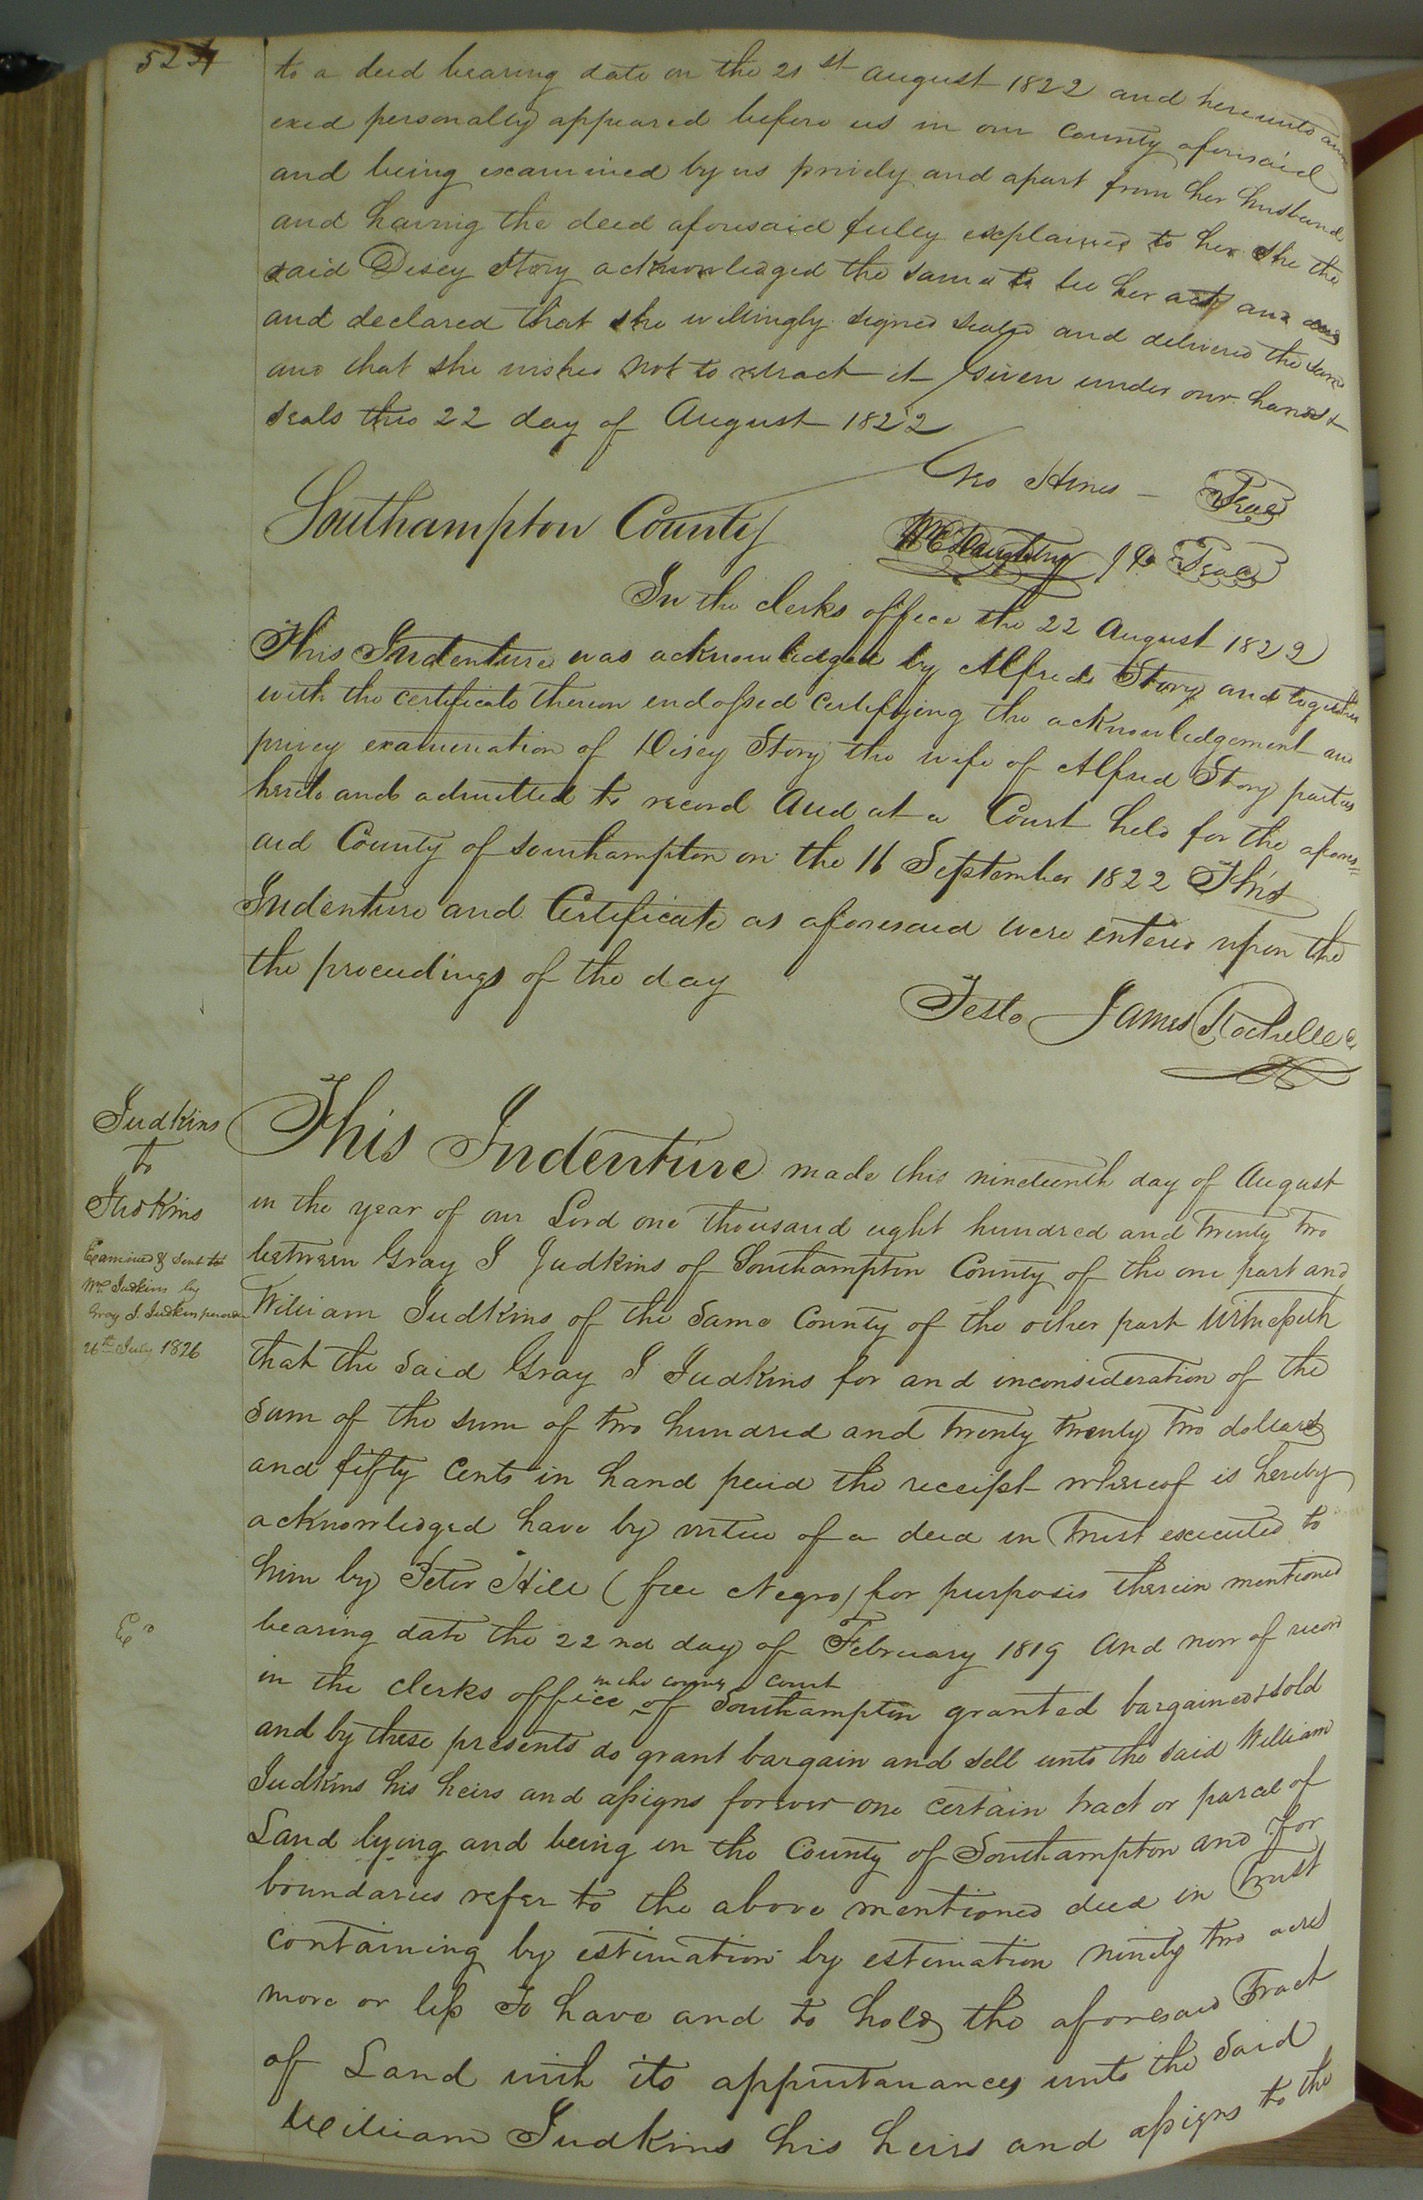 to a deed bearing date on the 21st August 1822 and hereunto ann
exed personally appeared before us in our County aforesaid
and being examined by us privily and apart from her husband
and having the deed aforesaid fully explained to her she the
said Disey Story acknowledged the same to be her act and
and declared that she willingly signed sealed and delivered the same
and that she wishes not to retract it Given under our hands &
seals this 22 day of August 1822
Hines Seal
Southampton County
Seal
In the clerks office the 22 August 1822
This Indenture was acknowledged by Alfred Story and together
with the certificate thereon endorsed certifying the acknowledgement and
privey examination of Disey Story the wife of Alfred Story parties
hereto and admitted to record And at a Court held for the afores=
aid County of Southampton on the 16 September 1822 This
Indenture and Certificate as aforesaid were entered upon the
the proceedings of the day
Teste James Rochelle C
Judkins
to
Judkins
Examined & sent to
Wm Judkins by
Gray J. Judkins
26th July 1826
This Indenture made this nineteenth day of August
in the year of our Lord one thousand eight hundred and twenty two
between Gray J Judkins of Southampton County of the one part and
William Judkins of the same County of the other part Witnesseth
that the said Gray J Judkins for and inconsideration of the
sum of the sum of two hundred and twenty twenty two dollars
and fifty Cents in hand paid the receipt whereof is hereby
acknowledged have by virtue of a deed in Trust executed to
him by Peter Hill (free Negro) for purposes therein mentioned
bearing date the 22nd day of February 1819 And now of record
in the clerks office in the county court of Southampton granted bargained & sold
and by these presents do grant bargain and sell unto the said William
Judkins his heirs and assigns forever one certain tract or parcel of
Land lying and being in the County of Southampton and for
boundaries refer to the above mentioned deed in Trust
containing by estimation by estimation ninety two acres
more or less To have and to hold the aforesaid Tract
of Land with its appurtanances unto the said
William Judkins his heirs and assigns to the